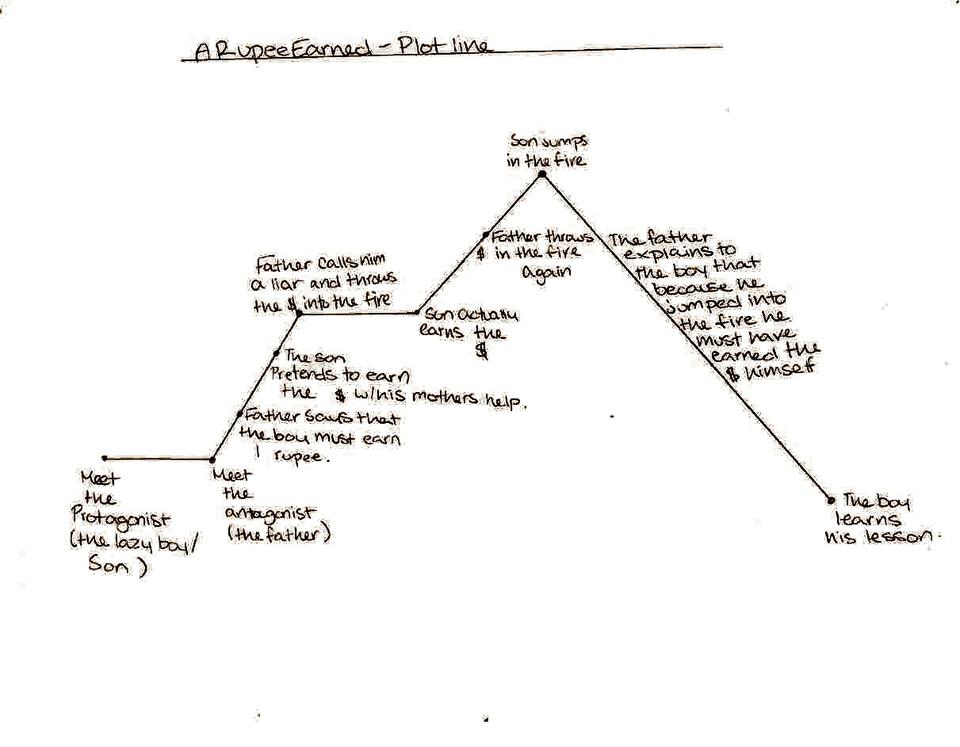 A Rupee Earned - Plot line
Son jumps
in the fire
Father throws
$ in the fire
again
The father
explains to
the boy that
because he
jumped into
the fire he
must have
earned the
$ himself
Father calls him
a liar and throws
the $ into the fire
Son actually
earns the
$
The son
Pretends to earn
the $ w/his mothers help.
Father says that
the boy must earn
1 rupee.
Meet
the
Protagonist
(the lazy boy/
Son)
Meet
the
antagonist
(the father)
The boy
learns
his lesson.